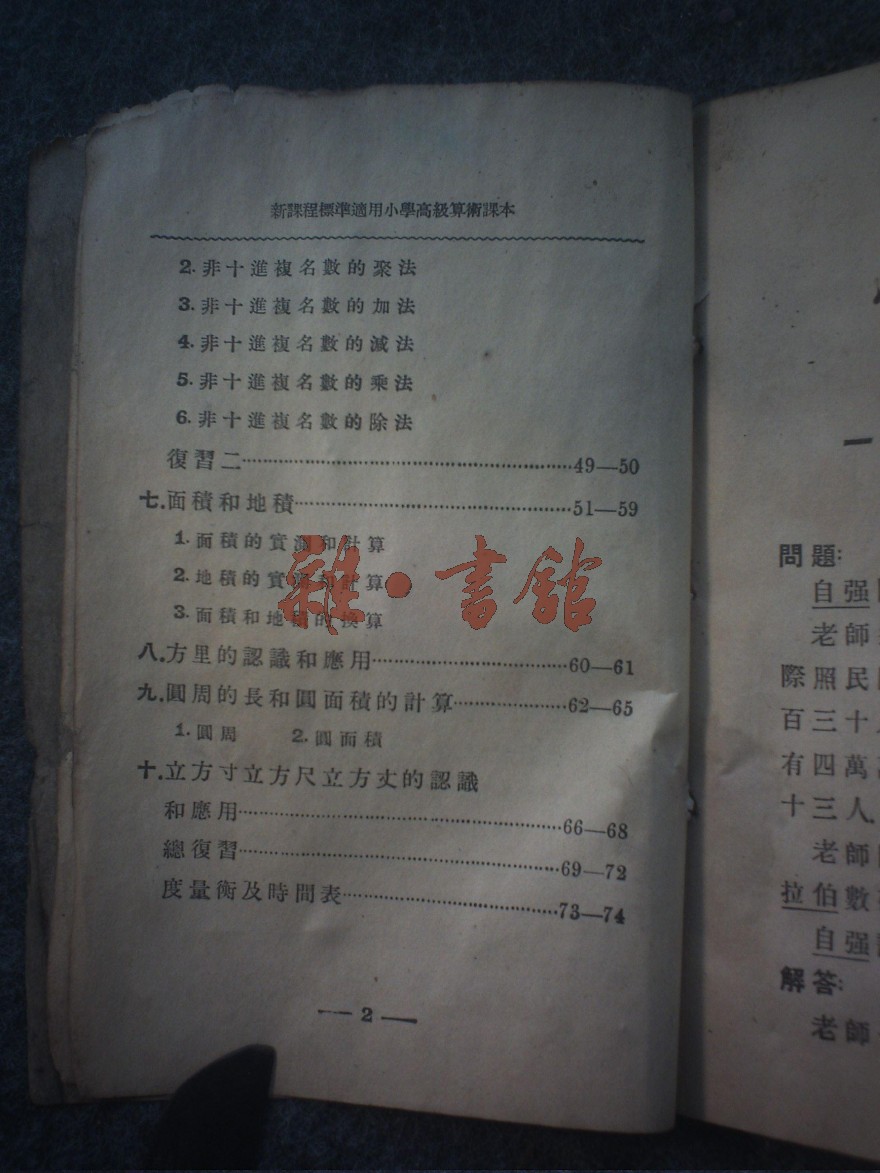 新課程標準適用小學高級算術課本
2.非十進複名數的聚法
3.非十進複名數的加法
4.非十進複名數的減法
5.非十進複名數的乘法
6.非十進複名數的除法
復習二…………49—50
七.面積和地積…………51—59
1.面積的實測和計算
2.地積的實測和計算
3.面積和地積的換算
八.方里的認識和應用…………60—61
九.圓周的長和圓面積的計算…………62—65
1.圓周 2.圓面積
十.立方寸立方尺立方丈的認識
和應用…………66—68
總復習…………69—72
度量衡及時間表…………73—74
— 2 —
雜·書館
一
問題:
自强
老師
際照民
百三十
有四萬
十三人
老師
拉伯數
自强
解答:
老師